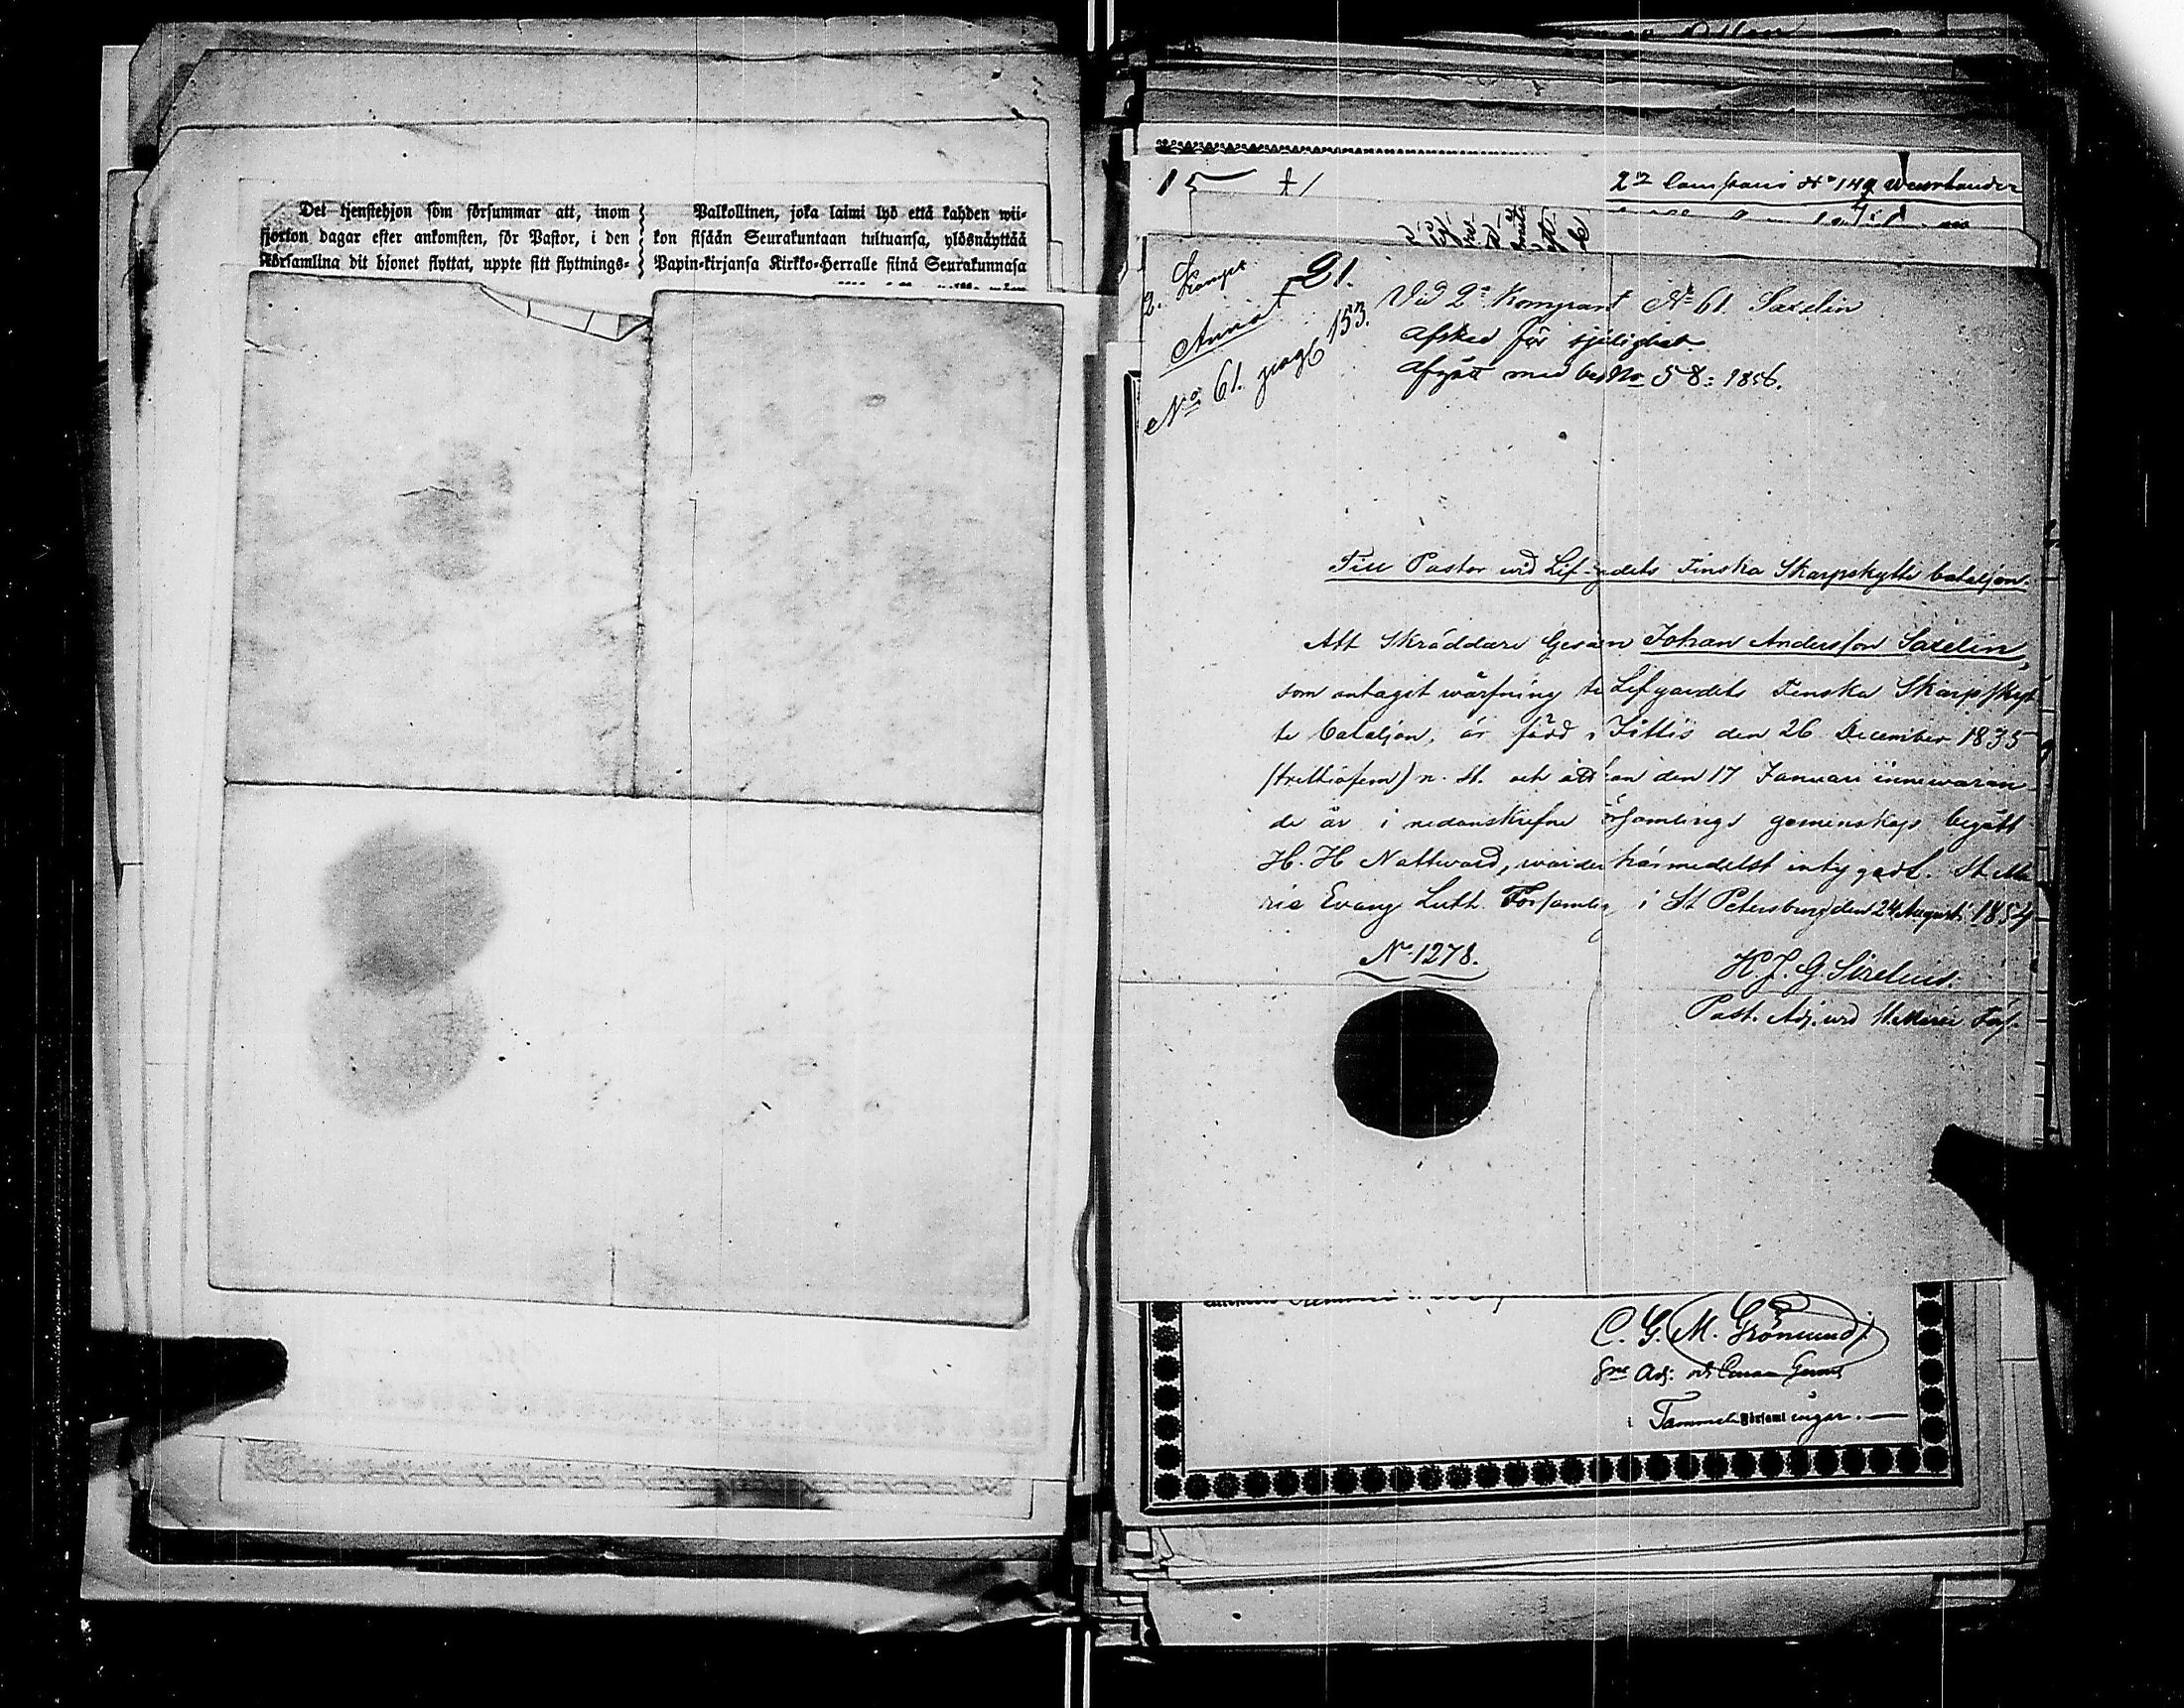 Det tjenstehjon som försummar att, inom
fjorton dagar efter ankomsten, för Pastor, i den
Församling dit hjonet flyttat, uppte sitt flyttnings-
Palkollinen, joka laimi lyö että kahden wii-
kon sisään Seurakuntaan tultuansa, ylösnäyttää
Papin-kirjansa Kirkko-Herralle siinä Seurakunnasa
15
2. Kompt
21.
Anna
No 61. pag 153.
Vid 2a Kompani No 61. Saxelin
Afsked för sjuklighet
Afgått med bet No 58: 1856.
Till Pastor vid Lif-gardets Finska Skarpskytte bataljon.
Att Skräddare Gesällen Johan Andersson Saxelin,
som antagit wärfning till Lifgardets Finska Skarpskyt-
te bataljon, är född i Jittis den 26 December 1835
(trettiofem) n. st. och att han den 17 Januari innewaran-
de år i nedanskrefne församlings gemenskap begått
H. H Nattward, warder härmedelst intygadt. St Ma-
ria Evang Luth Församling i St Petersburg den 24 Augusti 1854
No 1278.
H. J. G. Sirelius.
Past. Adj. vid St Marie Förs.
C. G. M. Grönlund
i Tammela Församlingar.